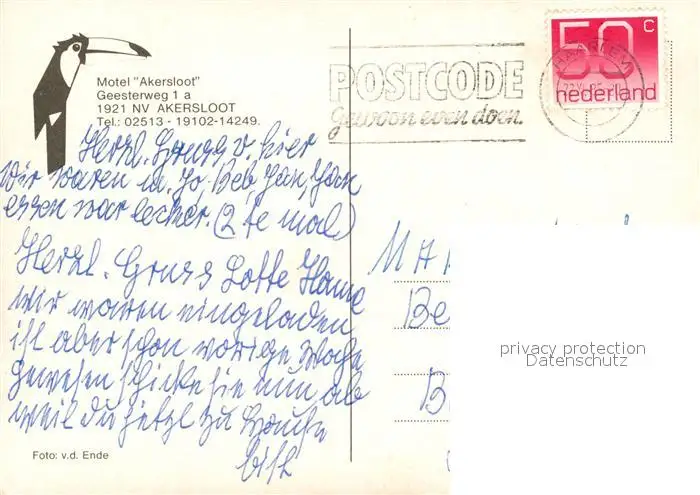 Motel "Akersloot"
Geesterweg 1 a
1921 NV AKERSLOOT
Tel.: 02513 - 19102-14249.
POSTCODE
gewoon even doen.
HAARLEM
50 c
nederland
Herzl. Gruss v. hier
Wir waren m. Jo, Beb, Jan,
essen war lecker. (2 te mal)
Herzl. Gruss Lotte
wir waren eingeladen
ist aber schon vorige Woche
gewesen schicke sie nun ab
weil du jetzt zu Hause
bist
MA
Be
B
privacy protection
Datenschutz
Foto: v.d. Ende